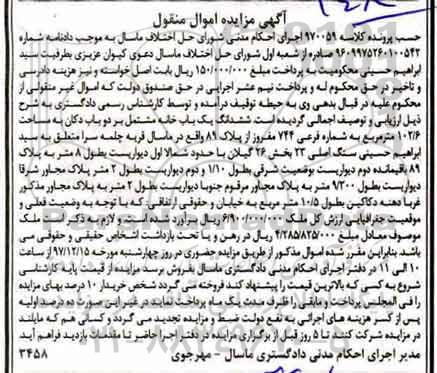 آگهی مزایده اموال منقول
حسب پرونده کلاسه ۹۷۰۰۵۹ اجرای احکام مدنی شورای حل اختلاف ماسال به موجب دادنامه شماره
۹۶۰۹۹۷۵۲۶۰۱۰۰۵۴۲ صادره از شعبه اول شورای حل اختلاف ماسال دعوی کیوان عزیزی بطرفیت سید
ابراهیم حسینی محکومیت به پرداخت مبلغ ۱۵۰/۰۰۰/۰۰۰ ریال بابت اصل خواسته و نیز هزینه دادرسی
و تاخیر در حق محکوم له و پرداخت نیم عشر اجرایی در حق صندوق دولت که اموال غیر منقول
محکوم علیه در قبال بدهی وی به حیطه توقیف درآمده و توسط کارشناس رسمی دادگستری به شرح
ذیل ارزیابی و توصیف اجمالی گردیده است. ششدانگ یک باب خانه مشتمل بر دو باب دکان به مساحت
۱۰۲/۶ مترمربع به شماره فرعی ۷۴۴ مفروز از پلاک ۸۹ واقع در ماسال قریه چلمه سرا متعلق به سید
ابراهیم حسینی سنگ اصلی ۲۳ بخش ۲۶ گیلان با حدود شمالا اول دیواریست بطول ۸ متر به پلاک
۸۹ باقیمانده دوم دیواریست بوضعیت شرقی بطول ۱/۱۰ و دوم دیواریست بطول ۲ متر پلاک مجاور شرقا
دیواریست بطول ۹/۲۰۰ متر به پلاک مجاور مرقوم جنوبا دیواریست بطول ۲ متر به پلاک مجاور مذکور
غربا دهنه دکاکین بطول ۱۰/۵ متر مربع به خیابان و حقوقی ارتفاقی که با توجه به وضعیت فعلی و
موقعیت جغرافیایی ارزش کل ملک ۶/۹۰۰/۰۰۰/۰۰۰ ریال برآورد شده است و لازم به ذکر است ملک
موصوف معادل مبلغ ۴/۲۸۵/۸۲۵/۰۰۰ ریال در رهن و یا تحت بازداشت اشخاص حقیقی و حقوقی می
باشد بنابراین مقرر شده اموال مذکور از طریق مزایده حضوری در روز چهارشنبه مورخه ۹۷/۱۲/۱۵ از ساعت
۱۰ الی ۱۱ در دفتر اجرای احکام مدنی دادگستری ماسال بفروش برسد مزایده از قیمت پایه کارشناسی
شروع به کسی که بالاترین قیمت را پیشنهاد کند فروخته می گردد شخص خریدار ۱۰ درصد بهای مزایده
را فی المجلس پرداخت و مابقی را ظرف مدت یک ماه پرداخت نماید در غیر این صورت ده درصد اولیه
پس از کسر هزینه های اجرائی به نفع دولت ضبط و مزایده تجدید می گردد و کسانی هم که مایلند
در مزایده شرکت کنند تا ۵ روز قبل از برگزاری مزایده در دفتر اجرا حاضر تا مقدمات بازدید فراهم آید.
مدیر اجرای احکام مدنی دادگستری ماسال - مهرجوی ۳۴۵۸